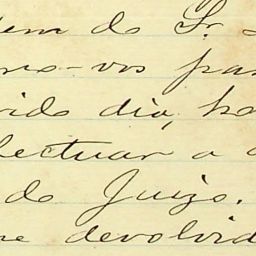 em do Sr.
me-vos par
rido dia, ha
fectuar a d
do Juizo.
me devolvid